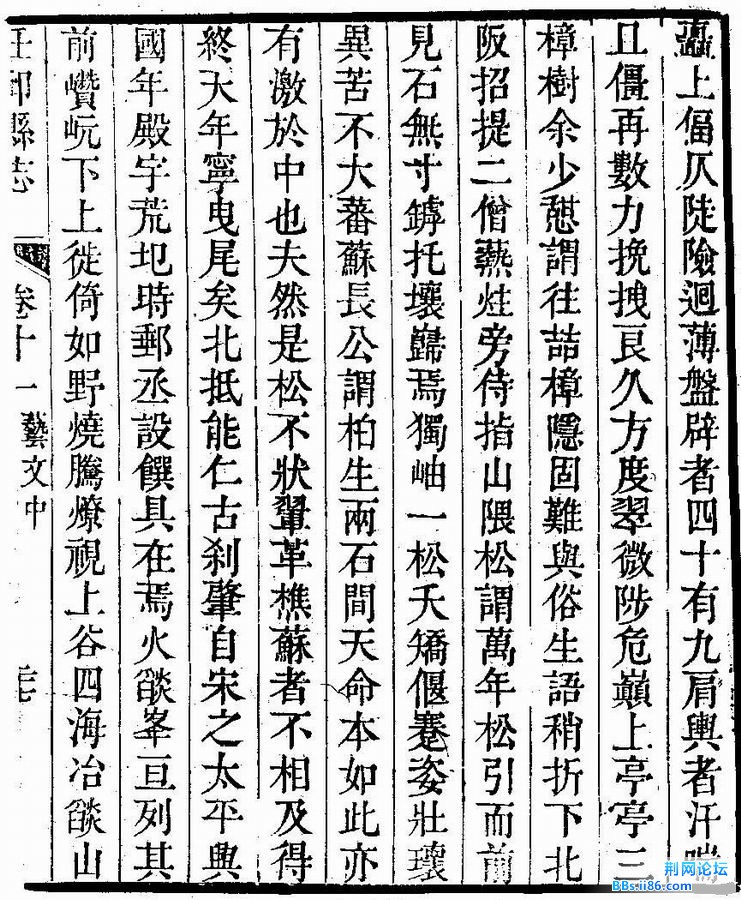 矗上偪仄陡險迴薄盤辟者四十有九肩輿者汗喘
且僵再數力挽拽艮久方度翠微陟危巔上亭亭三
樟樹余少憇謂往詰樟隱固難與俗生語稍折下北
阪招提二僧爇炷旁侍指山隈松謂萬年松引而前
見石無寸罅托壤歸焉獨岫一松夭矯偃蹇姿壯瓌
異苦不大蕃蘇長公謂柏生兩石間天命本如此亦
有激於中也夫然是松不狀鞏革樵蘇者不相及得
終天年寧曳尾矣北抵能仁古刹肇自宋之太平興
國年殿宇荒圯時郵丞設饌具在焉火燄峯亘列其
前巑岏下上徙倚如野燒騰燎視上谷四海冶燄山
任邱縣志
卷十一
藝文中
荆网论坛
BBs.ii86.com